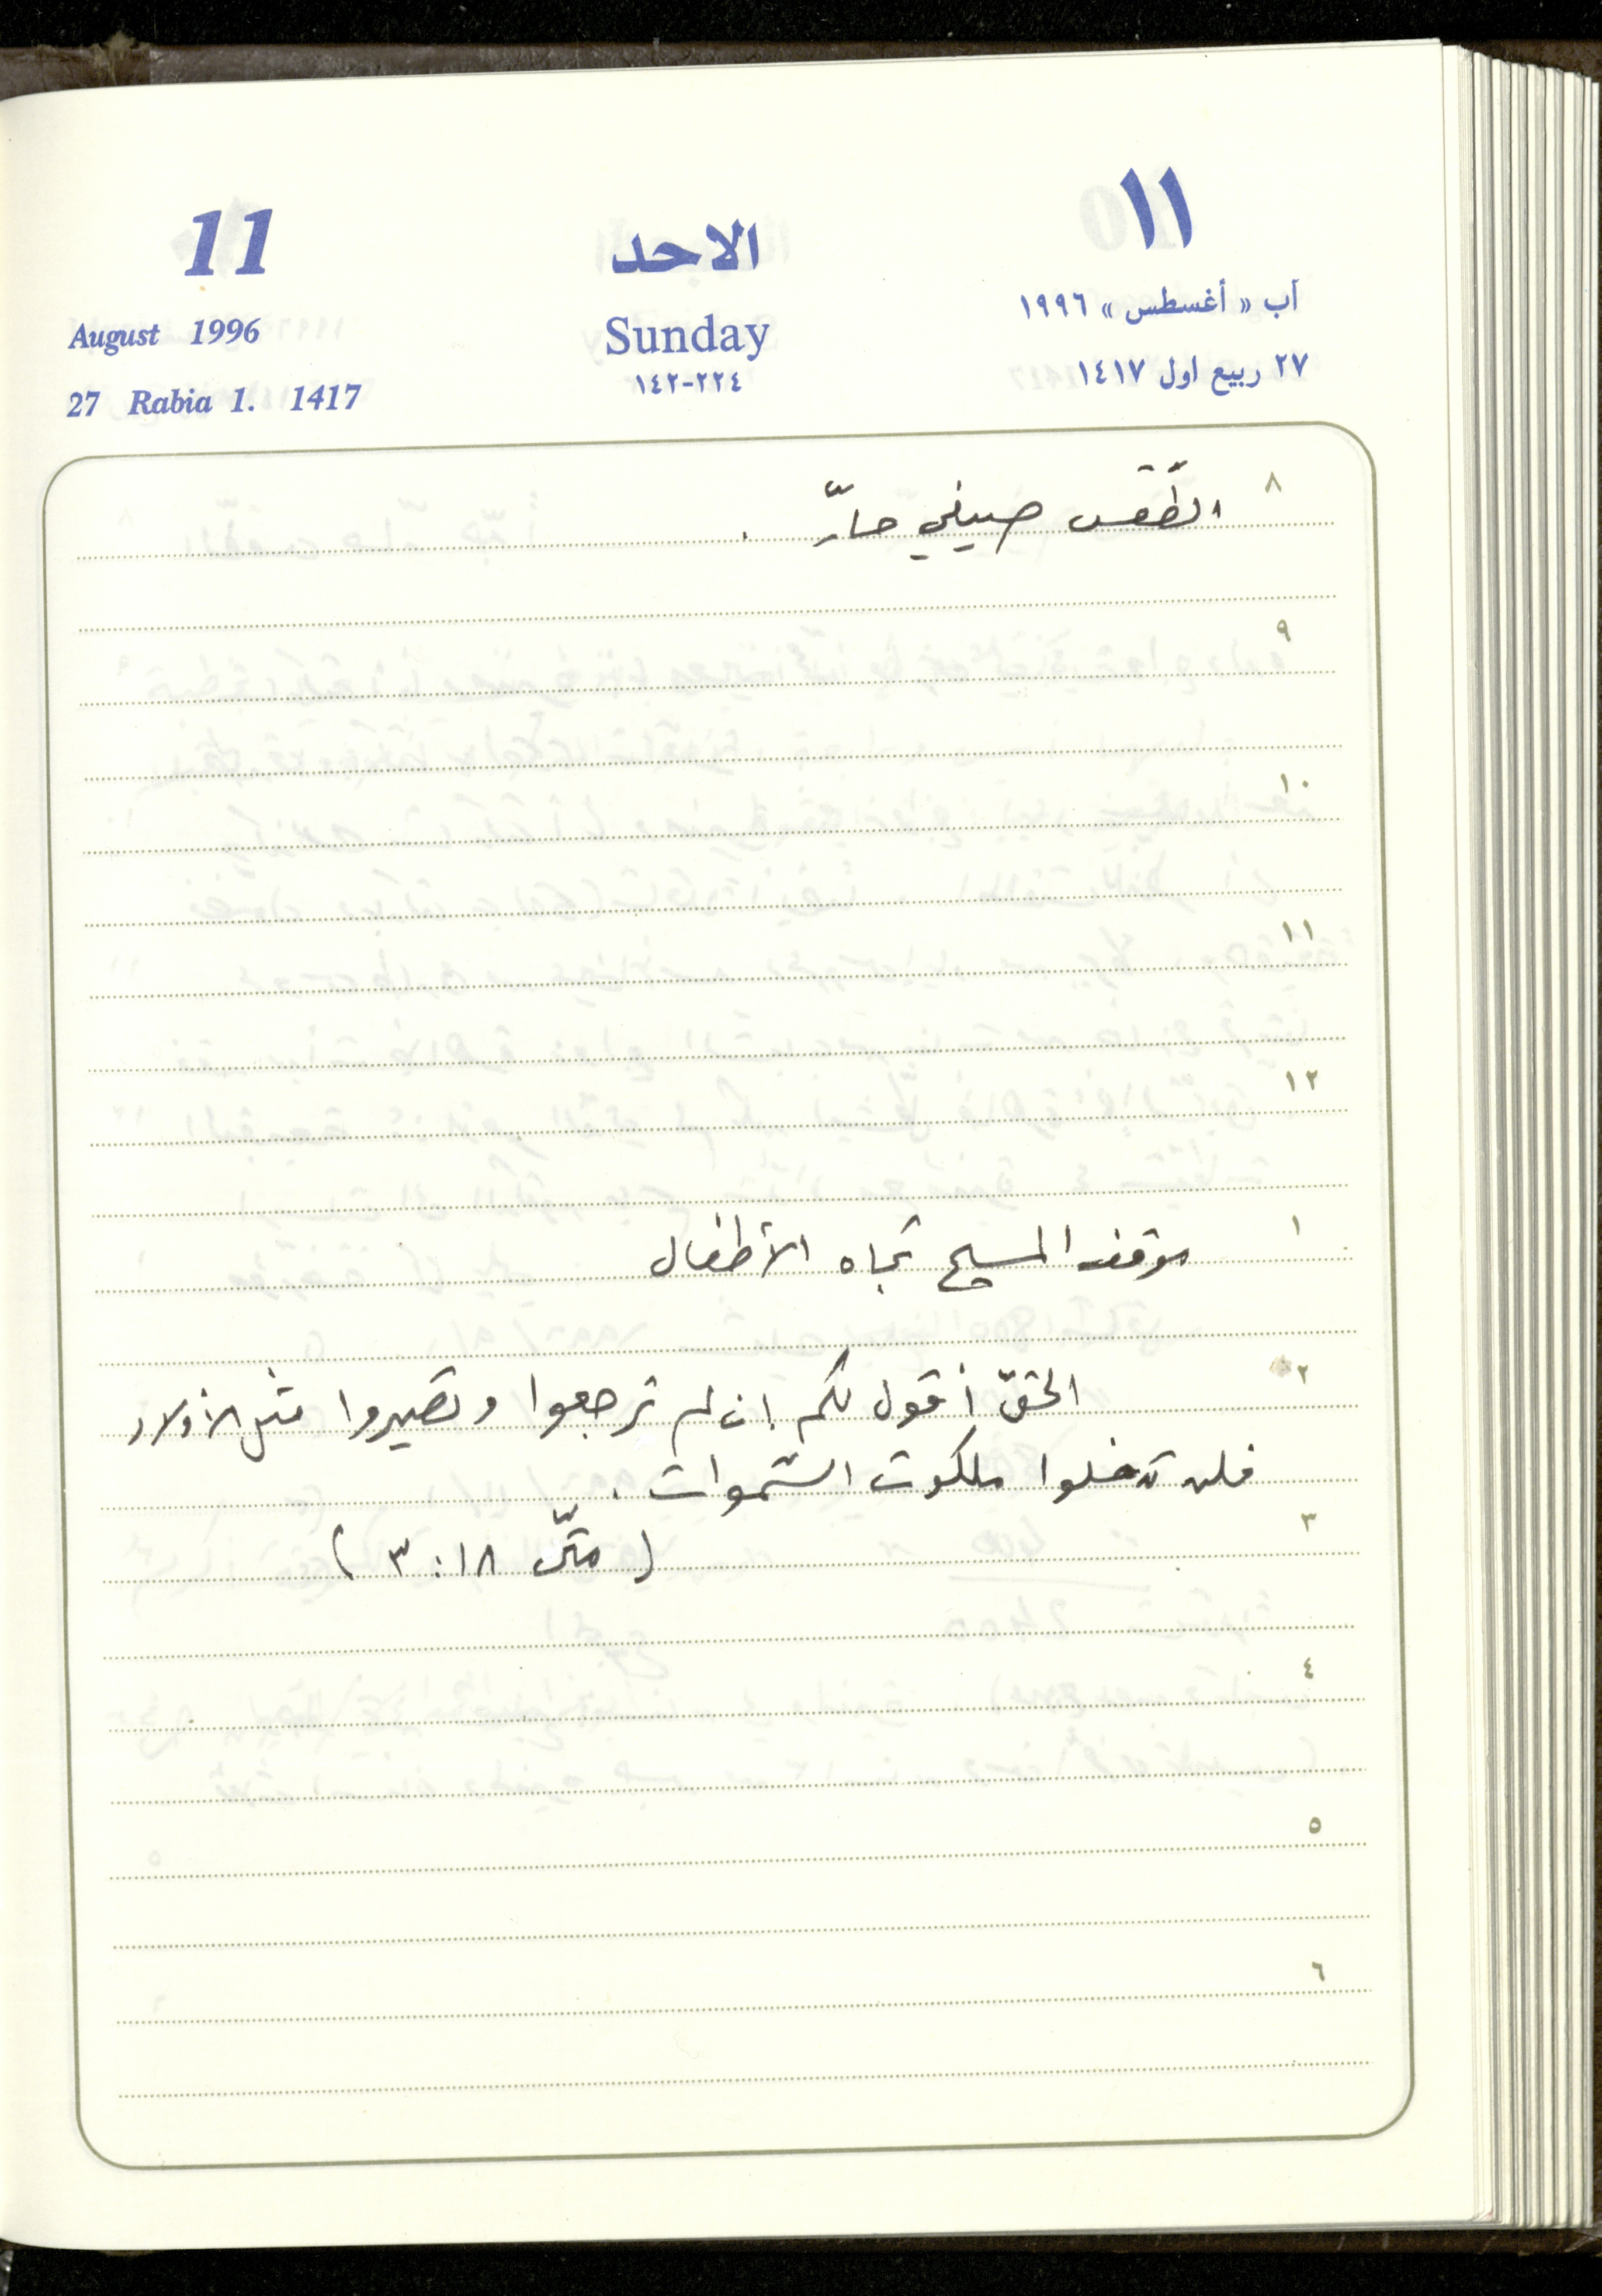 11 الاحد ١١
August 1996 Sunday آب « أغسطس » ١٩٩٦
27 Rabia 1. 1417 ٢٢٤-١٤٢ ٢٧ ربيع اول ١٤١٧
٨ الطّقس صيفي حارّ .
٩
١٠
١١
١٢
١ موقف المسيح تجاه الأطفال
٢ الحقّ أقول لكم إن لم ترجعوا وتصيروا مثل الأولاد
فلن تدخلوا ملكوت السّموات .
٣ ( متّى ١٨ : ٣ )
٤
٥
٦